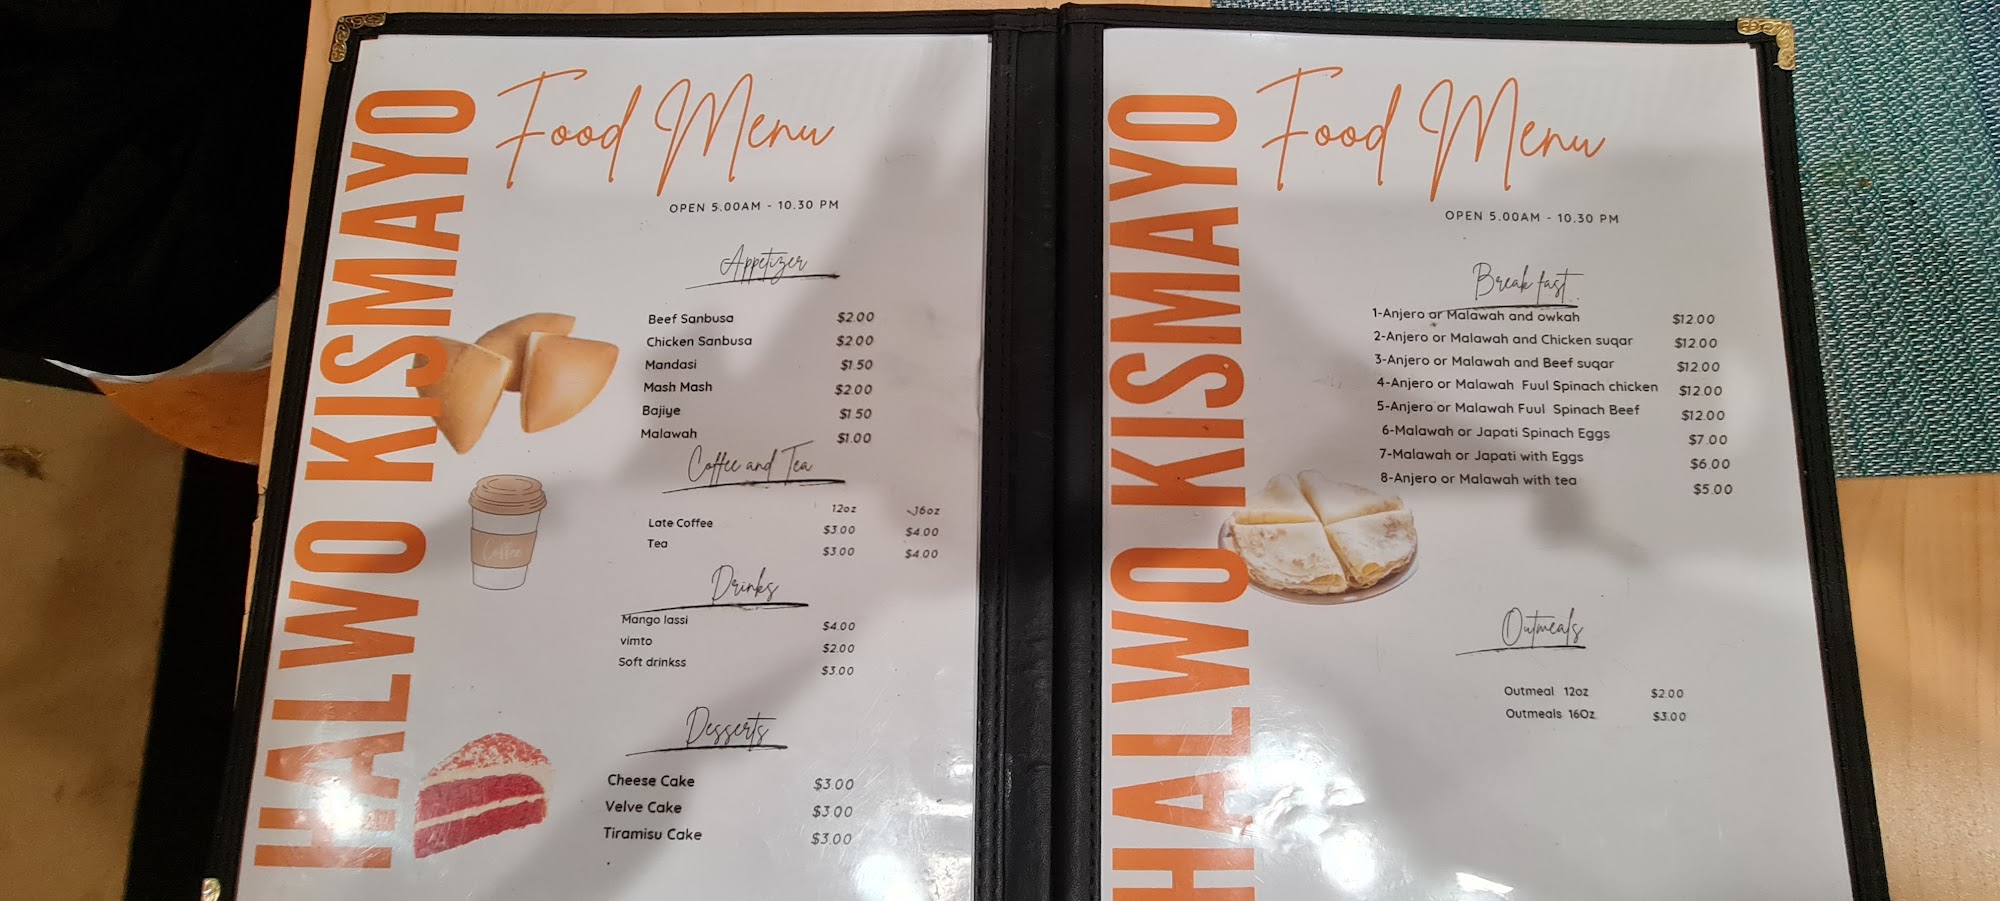 HALWO KISMAYO
Food Menu
OPEN 5.00AM - 10.30 PM
Appetizer
Beef Sanbusa $2.00
Chicken Sanbusa $2.00
Mandasi $1.50
Mash Mash $2.00
Bajiye $1.50
Malawah $1.00
Coffee and Tea
12oz 16oz
Late Coffee $3.00 $4.00
Tea $3.00 $4.00
Coffee
Drinks
Mango lassi $4.00
vimto $2.00
Soft drinkss $3.00
Desserts
Cheese Cake $3.00
Velve Cake $3.00
Tiramisu Cake $3.00
HALWO KISMAYO
Food Menu
OPEN 5.00AM - 10.30 PM
Breakfast
1-Anjero or Malawah and owkah $12.00
2-Anjero or Malawah and Chicken suqar $12.00
3-Anjero or Malawah and Beef suqar $12.00
4-Anjero or Malawah Fuul Spinach chicken $12.00
5-Anjero or Malawah Fuul Spinach Beef $12.00
6-Malawah or Japati Spinach Eggs $7.00
7-Malawah or Japati with Eggs $6.00
8-Anjero or Malawah with tea $5.00
Outmeals
Outmeal 12oz $2.00
Outmeals 16Oz $3.00